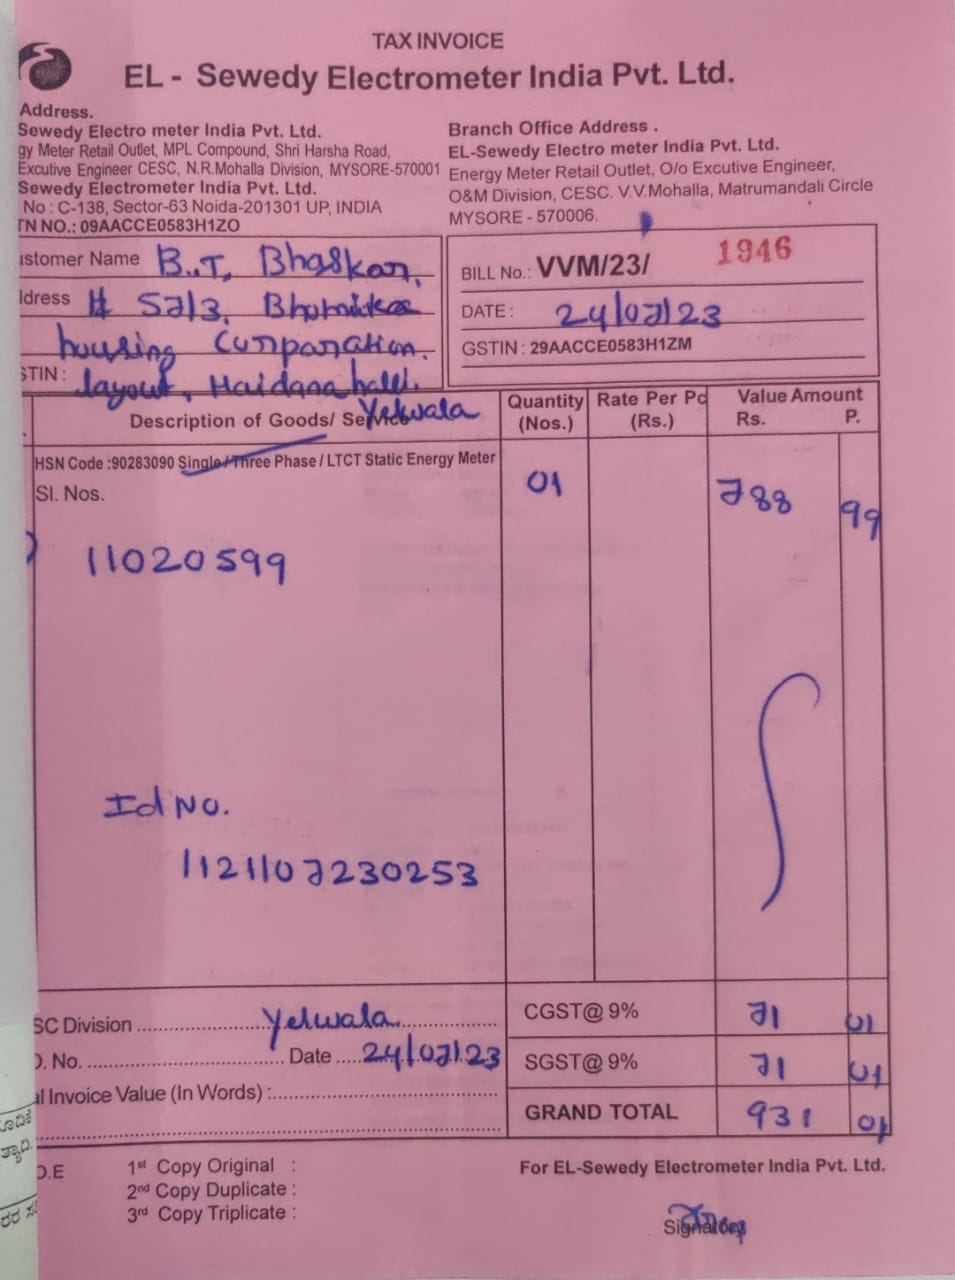 TAX INVOICE
EL - Sewedy Electrometer India Pvt. Ltd.
Address.
Sewedy Electro meter India Pvt. Ltd.
gy Meter Retail Outlet, MPL Compound, Shri Harsha Road,
Excutive Engineer CESC, N.R.Mohalla Division, MYSORE-570001
Sewedy Electrometer India Pvt. Ltd.
No : C-138, Sector-63 Noida-201301 UP, INDIA
TN NO.: 09AACCE0583H1ZO
Branch Office Address .
EL-Sewedy Electro meter India Pvt. Ltd.
Energy Meter Retail Outlet, O/o Excutive Engineer,
O&M Division, CESC. V.V.Mohalla, Matrumandali Circle
MYSORE - 570006.
ustomer Name B.T. Bhaskar,
ddress # 527/3,
housing Corporation.
STIN : layout,
Yelwala
BILL No.: VVM/23/ 1946
DATE : 24/07/23
GSTIN : 29AACCE0583H1ZM
Description of Goods/ Service
Quantity (Nos.)
Rate Per Pc (Rs.)
Value Amount
Rs. P.
HSN Code :90283090 Single/Three Phase / LTCT Static Energy Meter
Sl. Nos. 01 788 99
11020599
Id No.
1121107230253
SC Division Yelwala
O. No. Date 24/07/23
al Invoice Value (In Words) :
CGST@ 9% 71 01
SGST@ 9% 71 01
GRAND TOTAL 931 01
O.E
1st Copy Original :
2nd Copy Duplicate :
3rd Copy Triplicate :
For EL-Sewedy Electrometer India Pvt. Ltd.
Signatory